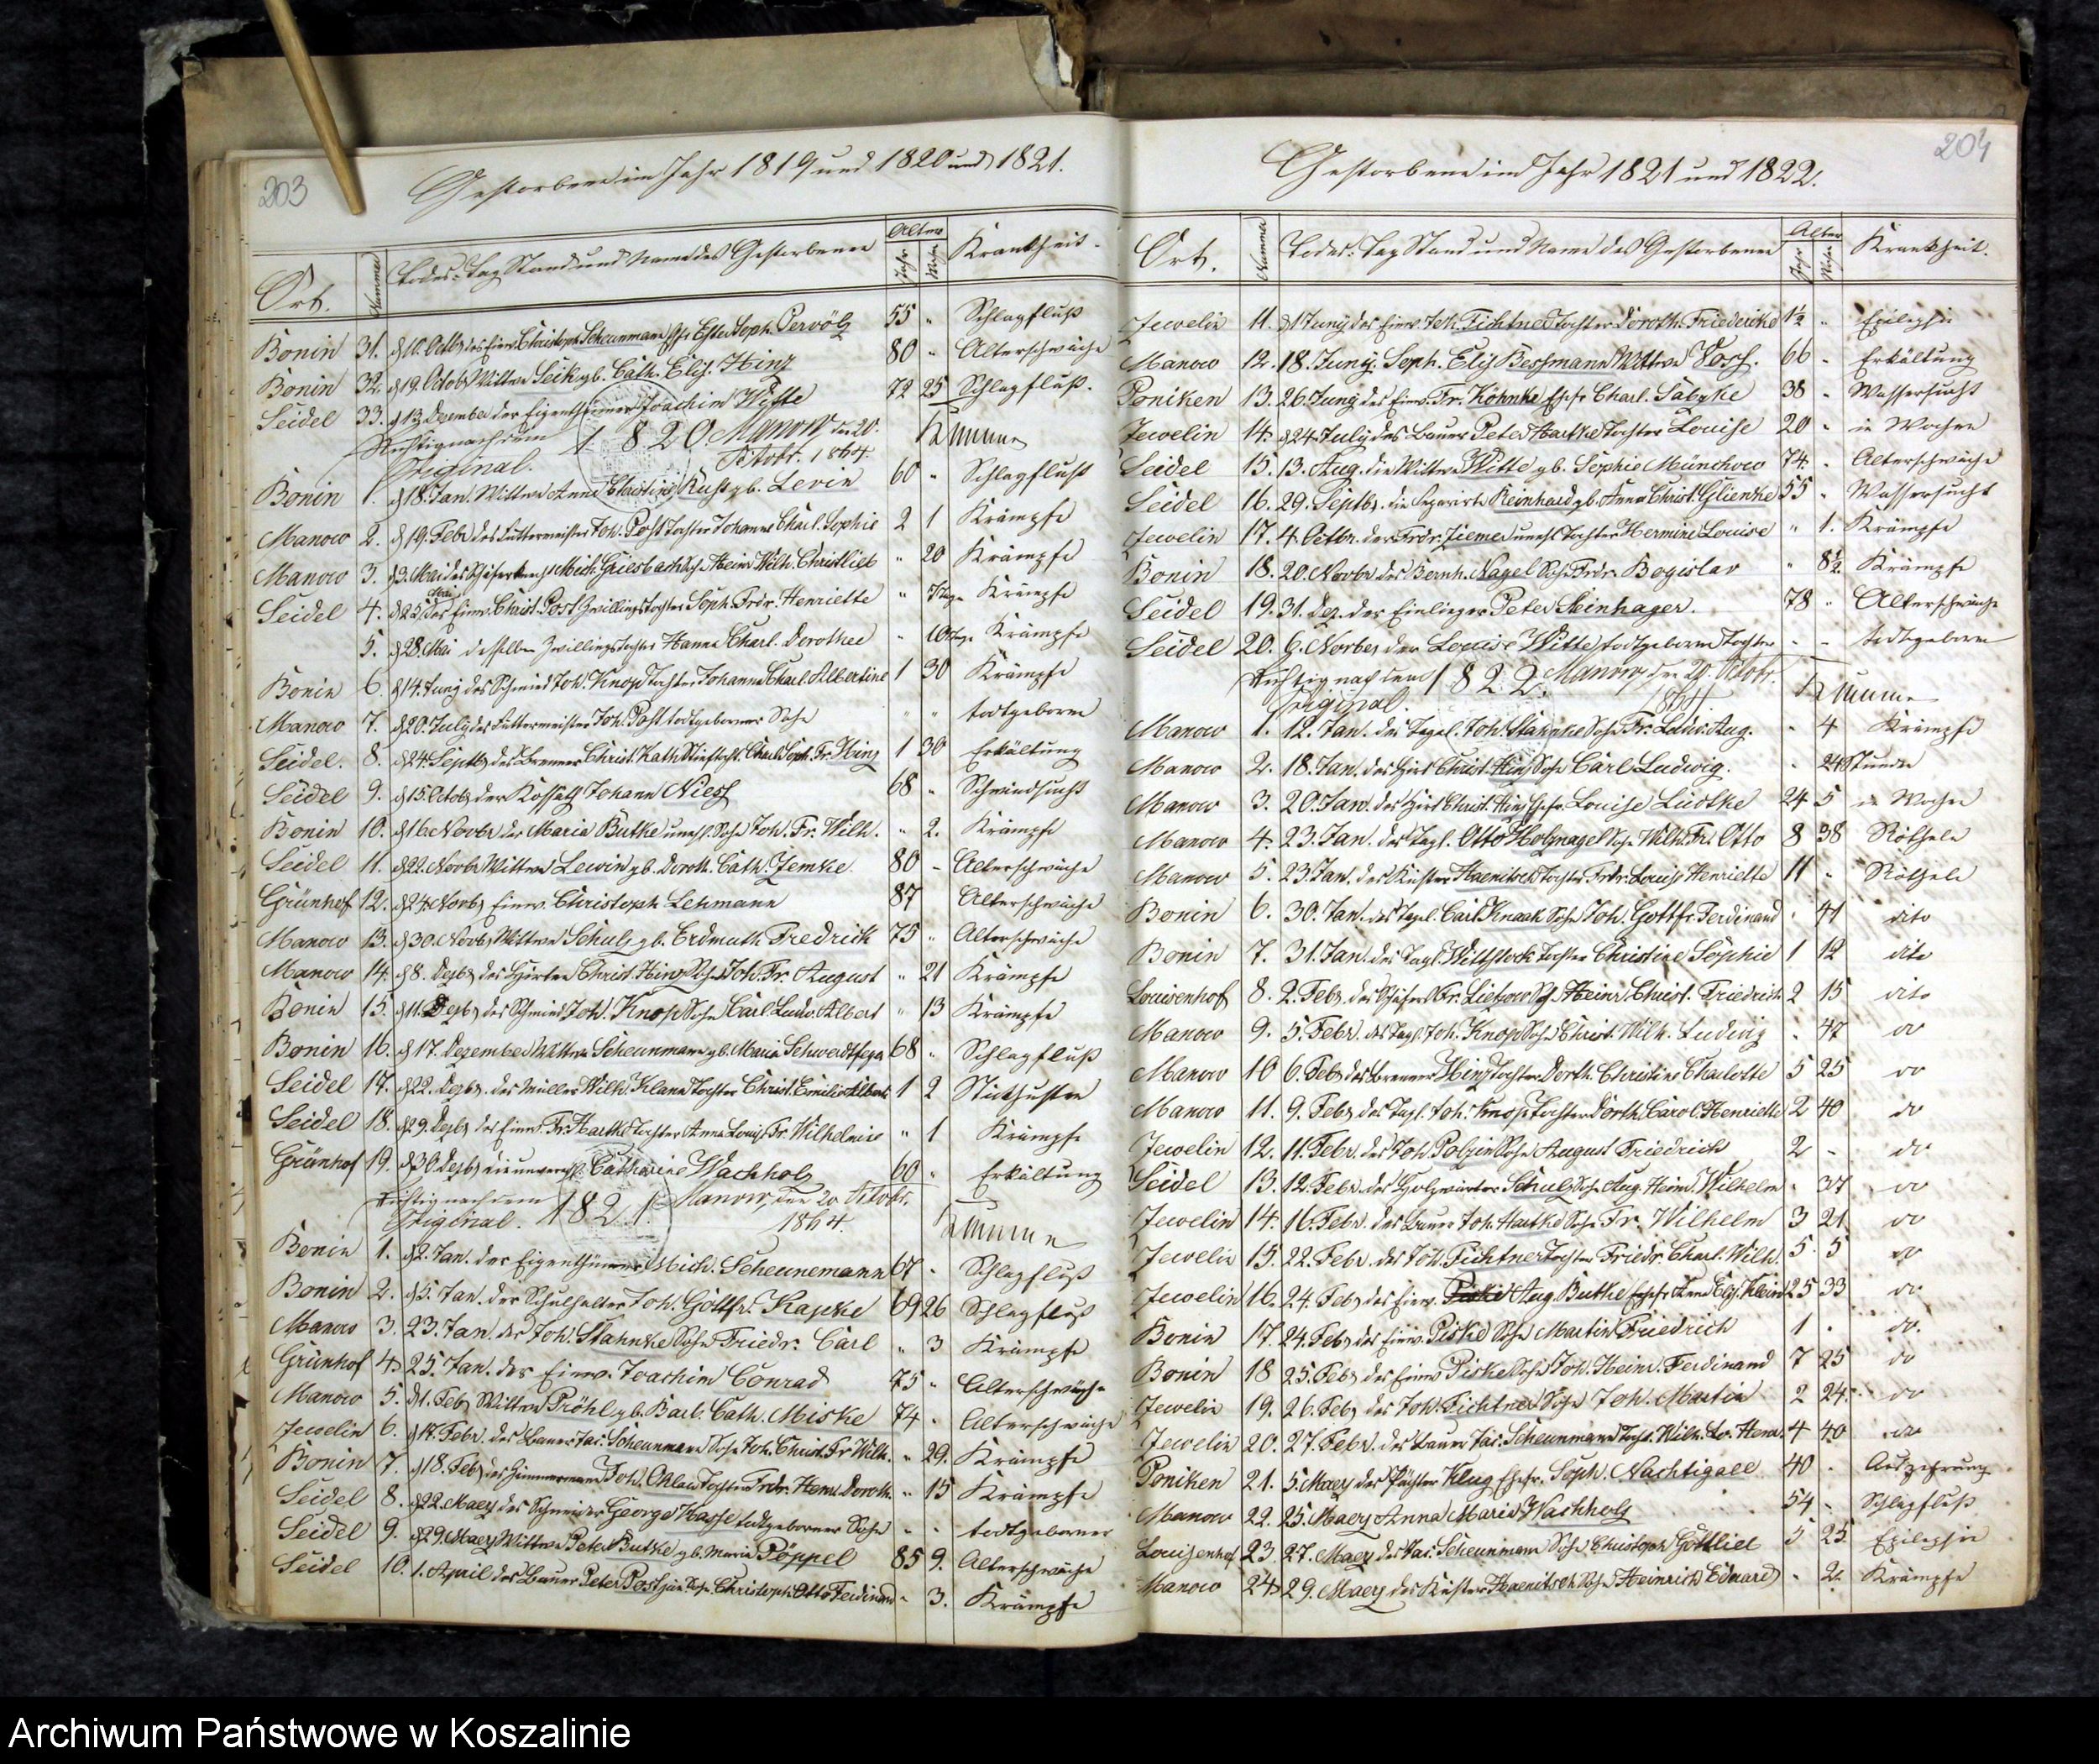 203
Gestorbene im Jahr 1819 und 1820 und 1821.
Ort. Nummer Todes-Tag Stand und Name des Gestorbenen Alter Jahr Woche Krankheit.
Bonin 31. d 10. Octb des Einw. Christoph Scheunemann Ehefr. Soph. Pervölz 55 " Schlagfluß
Bonin 32. d 19. Octob Wittwe Leih gb. Cath. Elis. Hinz 80 " Alterschwäche
Seidel 33. d 13 Dezember der Eigenthümer Joachim Witte 72 25 Schlagfluß.
Richtig nach dem 1820 Manow, den 20.
Original. Octobr. 1864. Kumme
Bonin 1. d 18. Jan. Wittwe Anna Christine Kuß gb. Levin 60 " Schlagfluß
Manow 2. d 19. Febr des Futtermeister Joh. Post Tochter Johanne Charl. Sophie 2 1 Krämpfe
Manow 3. d 3. Mai des Schäferknecht Mich. Griesbach Sohn Heinr. Wilh. Christlieb " 20 Krämpfe
Seidel 4. d 25 Mai des Einw. Christ. Post Zwillingstochter Soph. Frdr. Henriette " 7 tage Krämpfe
5. d 28. Mai desselben Zwillingstochter Hanna Charl. Dorothee " 10 tage Krämpfe
Bonin 6. d 14. Juny des Schmied Joh. Knop Tochter Johanne Charl. Albertine 1 30 Krämpfe
Manow 7. d 20. July des Futtermeister Joh. Post todtgeborner Sohn " " todtgeboren
Seidel. 8. d 24. Septb des Brenner Christ. Kath Stieftocht. Charl. Soph. Fr. Hinz 1 30 Erkältung
Seidel 9. d 15. Octob der Kossath Johann Niess 68 " Schwindsucht
Bonin 10. d 16. Novbr der Maria Butke unehl. Sohn Joh. Fr. Wilh. " 2. Krämpfe
Seidel 11. d 22. Novbr Wittwe Lewin gb. Doroth. Cath. Zemke 80 - Alterschwäche
Grünhof 12. d 24. Novbr Einw. Christoph Lehmann 87 Alterschwäche
Manow 13. d 30. Novbr Wittwe Schulz gb. Erdmuth Fredrich 75 " Alterschwäche
Manow 14. d 8. Dezb des Hirten Christ. Hinz Sohn Joh. Fr. August " 21 Krämpfe
Bonin 15. d 11. Dezb des Schmied Joh. Knop Sohn Carl Ludw. Albert " 13 Krämpfe
Bonin 16. d 17. Dezember Wittwe Scheunemann gb. Maria Schwerdtfeger 68 " Schlagfluß
Seidel 17. d 22. Dezb. des Müller Wilh. Klann Tochter Christ. Emilie Albert. 1 2 Stickhusten
Seidel 18. d 29. Dezb des Einw. Fr. Hartke Tochter Anna Louis. Fr. Wilhelmine " 1 Krämpfe
Grünhof 19. d 30. Dezb die unverehl. Catharine Wachholz 60 " Erkältung
Richtig nach dem 1821. Manow, den 20 Octobr.
Original. 1864. Kumme
Bonin 1. d 2. Jan. der Eigenthümer Mich. Scheunemann 67 - Schlagfluß
Bonin 2. d 5. Jan. der Schulhalter Joh. Gottfr. Kapke 69 26 Schlagfluß
Manow 3. 23. Jan. des Joh. Stahnke Sohn Friedr. Carl " 3 Krämpfe
Grünhof 4. 25. Jan. des Einw. Joachim Conrad 75 " Alterschwäche
Manow 5. d 1. Feb Wittwe Pröhl gb. Barb. Cath. Miske 74 - Alterschwäche
Jewelin 6. d 17. Febr. des Bauer Jac. Scheunemann Sohn Joh. Christ. Fr. Wilh. " 29. Krämpfe
Bonin 7. d 18. Feb des Zimmermann Joh. Tochter Frdr. Henr. Doroth. " 15 Krämpfe
Seidel 8. d 22. Maerz des Schneider George Hasse todtgeborner Sohn - - todtgeborner
Seidel 9. d 29. Maerz Wittwe Peter Butzke gb. Maria Pöppel 85 9. Alterschwäche
Seidel 10. 1. April des Bauer Peter Post jun. Sohn Christoph Otto Ferdinand - 3. Krämpfe
204
Gestorbene im Jahr 1821 und 1822.
Ort. Nummer Todes-Tag Stand und Name des Gestorbenen Alter Jahr Woche Krankheit.
Jewelin 11. d 1 Juny des Einw. Joh. Fichtner Tochter Doroth. Friedericke 1½ " Epilepsie
Manow 12. 18. Juny. Soph. Elis Wittwe 66 - Erkältung
Poniken 13. 26. Juny des Einw. Fr. Köhnke Ehefr Charl. Sabzke 38 - Wassersucht
Jewelin 14. d 24. July des Bauer Peter Hartke Tochter Louise 20 - in Wochen
Seidel 15. 13. Aug. die Wittwe Witte gb. Sophie Münchow 74. - Alterschwäche
Seidel 16. 29. Septb. die Separirte Reinhard gb. Anna Christ. Glienke 55 " Wassersucht
Jewelin 17. 4. Octbr. der Frdr. Zieme unehl Tochter Hermine Louise " 1. Krämpfe
Bonin 18. 20. Novbr des Bernh. Nagel Sohn Frdr. Bogislav " 8½ Krämpfe
Seidel 19. 31. Dez. der Einlieger Peter Steinhager. 78 " Alterschwäche
Seidel 20. 9. Novber der Louise Witte todtgeborne Tochter - - todtgeboren
Richtig nach dem 1822. Manow, den 20. Octobr.
Original. 1864. Kumme
Manow 1. 12. Jan. des Tagel. Joh. Stahnke Sohn Fr. Ludw. Aug. - 4 Krämpfe
Manow 2. 18. Jan. des Hirt Christ. Hinz Sohn Carl Ludwig. " 24 Stunden
Manow 3. 20. Jan. des Hirt Christ. Hinz Ehefr. Louise Lüdtke 24 5 in Wochen
Manow 4. 23. Jan. des Tagl. Otto Holznagel Sohn Wilh. Fr. Otto 8 38 Rötheln
Manow 5. 23. Jan. des Küster Haenitsch Tochter Frdr. Louise Henriette 11 " Rötheln
Bonin 6. 30. Jan. des Tagel. Carl Knaak Sohn Joh. Gottfr. Ferdinand " 41 dito
Bonin 7. 31. Jan. des Tagl. Wittstock Tochter Christine Sophie 1 12 dito
Louisenhof 8. 2. Feb. des Schäfer Fr. Lietzow Sohn Heinr. Christ. Friedrich 2 15 dito
Manow 9. 5. Febr. des Tagl. Joh. Knop Sohn Christ. Wilh. Ludwig - 47 do
Manow 10 6. Feb des Brenner Hinz Tochter Dorth. Christine Charlotte 5 25 do
Manow 11. 9. Feb des Tagl. Joh. Knop Tochter Dorth. Carol. Henriette 2 40 do
Jewelin 12. 11. Febr. des Joh. Polzin Sohn August Friedrich 2 - do
Seidel 13. 12. Febr. des Holzwärter Schulz Sohn Aug. Heinr. Wilhelm " 37 do
Jewelin 14. 16. Febr. des Bauer Joh. Hartke Sohn Fr. Wilhelm 3 21 do
Jewelin 15. 22. Febr. des Joh. Fichtner Tochter Friedr. Charl. Wilh. 5. 5 do
Jewelin 16. 24. Feb des Einw. Piske Aug. Butke Ehefr Anna Elis. Klein 25 33 do
Bonin 17. 24. Feb des Einw. Piske Sohn Martin Friedrich 1 . do.
Bonin 18 25. Feb des Einw Piske Sohn Joh. Heinr. Ferdinand 7 25 do
Jewelin 19. 26. Feb des Joh. Fichtner Sohn Joh. Martin 2 24 do
Jewelin 20. 27. Febr. des Bauer Jac. Scheunemann Tocht. Wilh. Lo. Henr. 4 40 do
Poniken 21. 5. Maerz des Pächter Klug Ehefr. Soph. Nachtigall 40 . Auszehrung
Manow 22. 25. Maerz Anna Maria Wachholz 54 - Schlagfluß
Louisenhof 23. 27. Maerz des Jac. Scheunemann Sohn Christoph Gottlieb 5 25 Epilepsie
Manow 24. 29. Maerz des Küster Haenitsch Sohn Heinrich Eduard - 2. Krämpfe
Archiwum Państwowe w Koszalinie